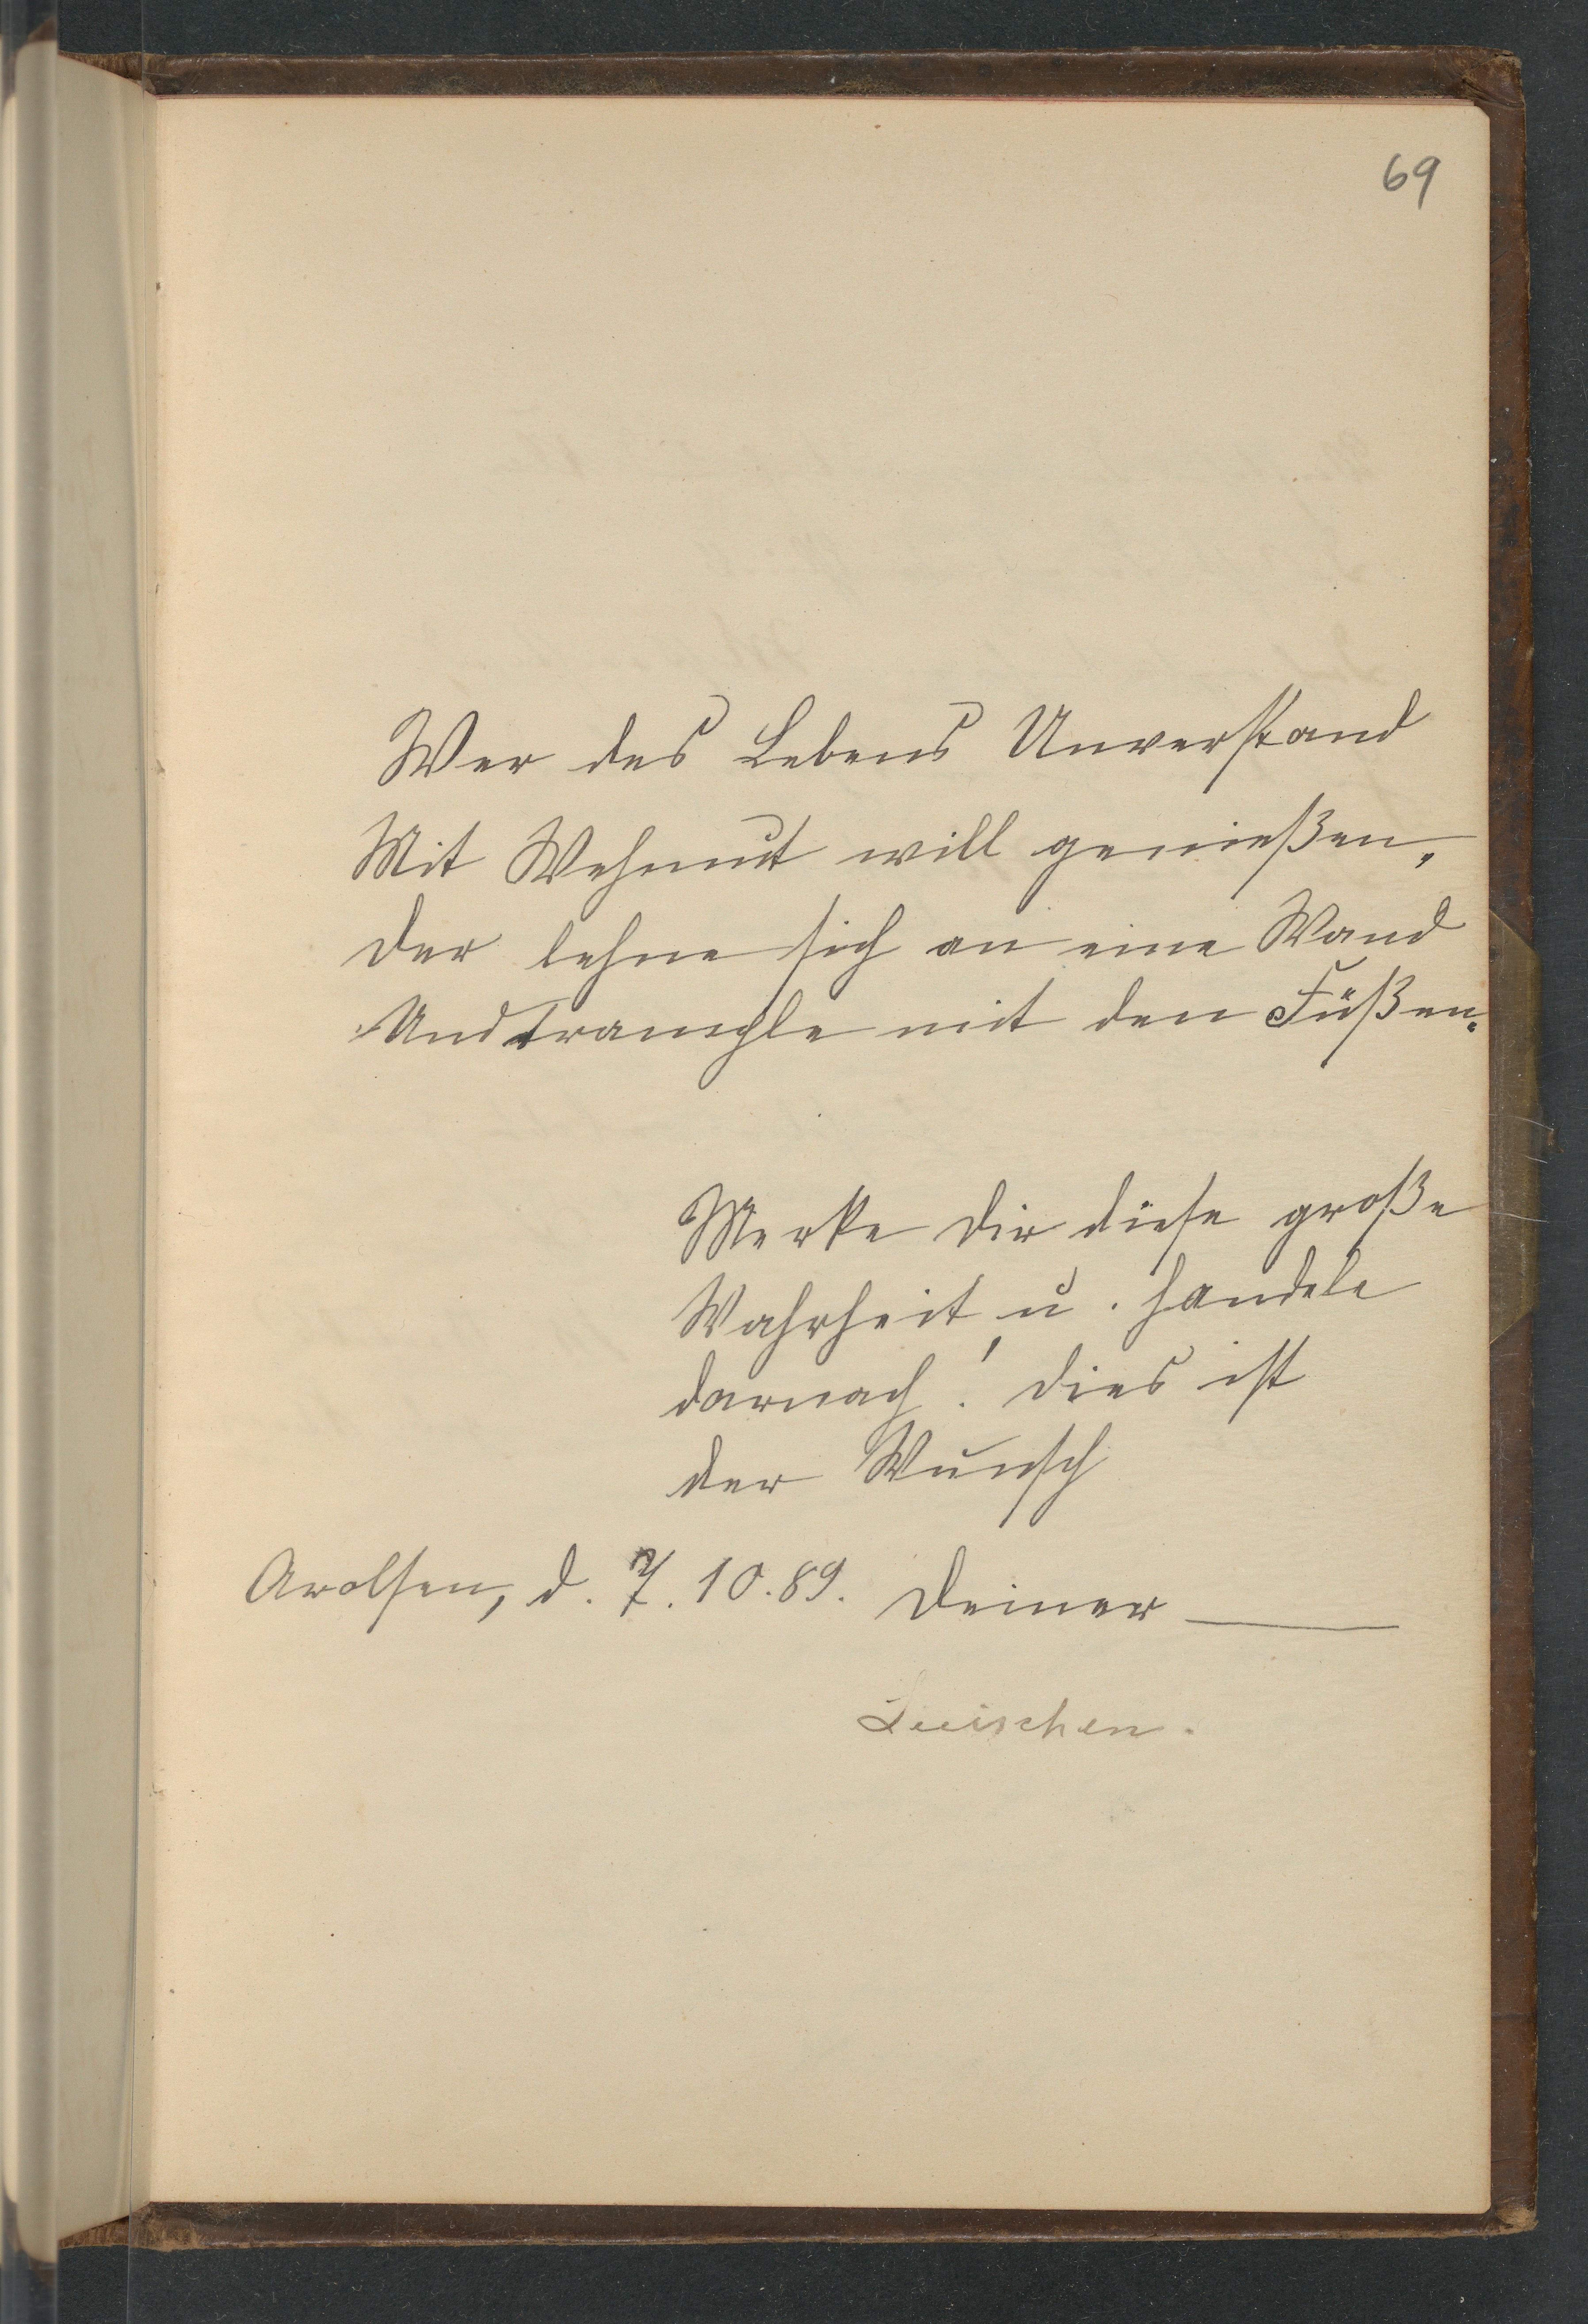 69
Wer des Lebens Unverstand
Mit Wehmut will genießen,
Der lehne sich an eine Wand
Und trample mit den Füßen.
Merke Dir diese große
Wahrheit, u. handele
darnach! Dies ist
der Wunsch
Arolsen, d. 7. 10. 89. Deiner
Luischen.